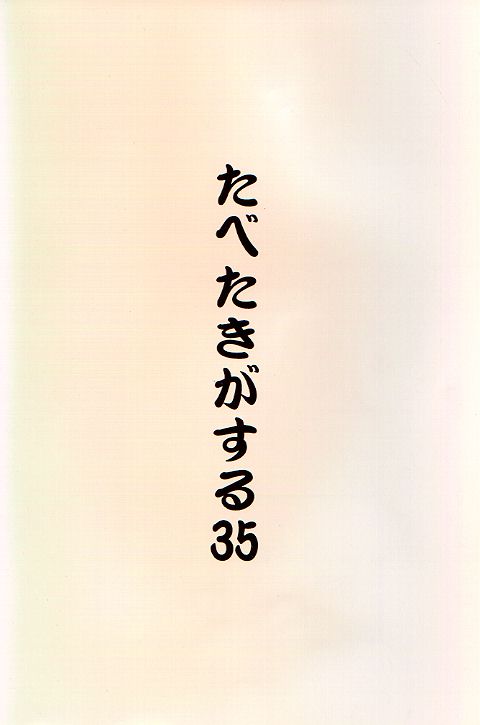 たべたきがする35